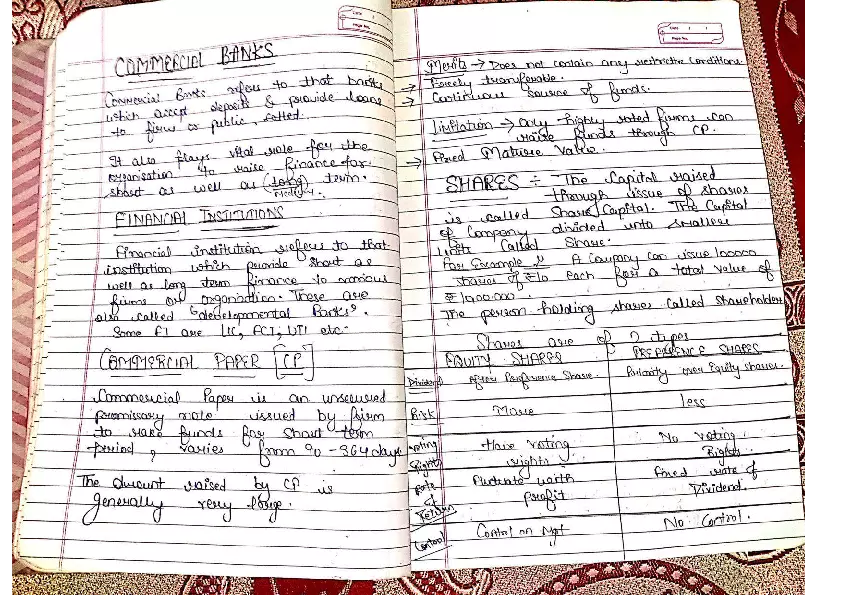 COMMERCIAL BANKS
Commercial Banks refers to that banks
which accept deposits & provide loans
to firms or public, called.
It also plays vital role for the
organisation to raise finance for
short as well as (long) term.
Medium
FINANCIAL INSTITUTIONS
Financial institution refers to that
institution which provide short as
well as long term finance to various
firms or organisation. These are
also called "developmental Banks".
Some FI are LIC, FCI, UTI etc.
COMMERCIAL PAPER [CP]
Commercial Paper is an unsecured
promissory note issued by firm
to raise funds for short term
period, varies from 90 - 364 days
The amount raised by CP is
generally very large.
Date
Page No.
Merits → Does not contain any restrictive conditions.
→ Freely transferable.
→ Continuous source of funds.
limitation → only highly rated firms can
raise funds through CP.
→ Fixed Mature Value.
SHARES ÷ The Capital raised
through issue of shares
is called Share Capital. The Capital
of Company divided into smaller
Unit Called Share.
For Example, A Company can issue 100000
shares of ₹10 each for a total value of
₹ 10,00,000.
The person holding shares called shareholders
Shares are of 2 types
EQUITY SHARES PREFERENCE SHARES
Dividend After Preference Share. Priority over Equity shares.
Risk More less
Voting Rights Have voting rights No voting Rights.
Rate of Return Fluctuate with Profit Fixed rate of Dividend.
Control Control on Mgt No Control.